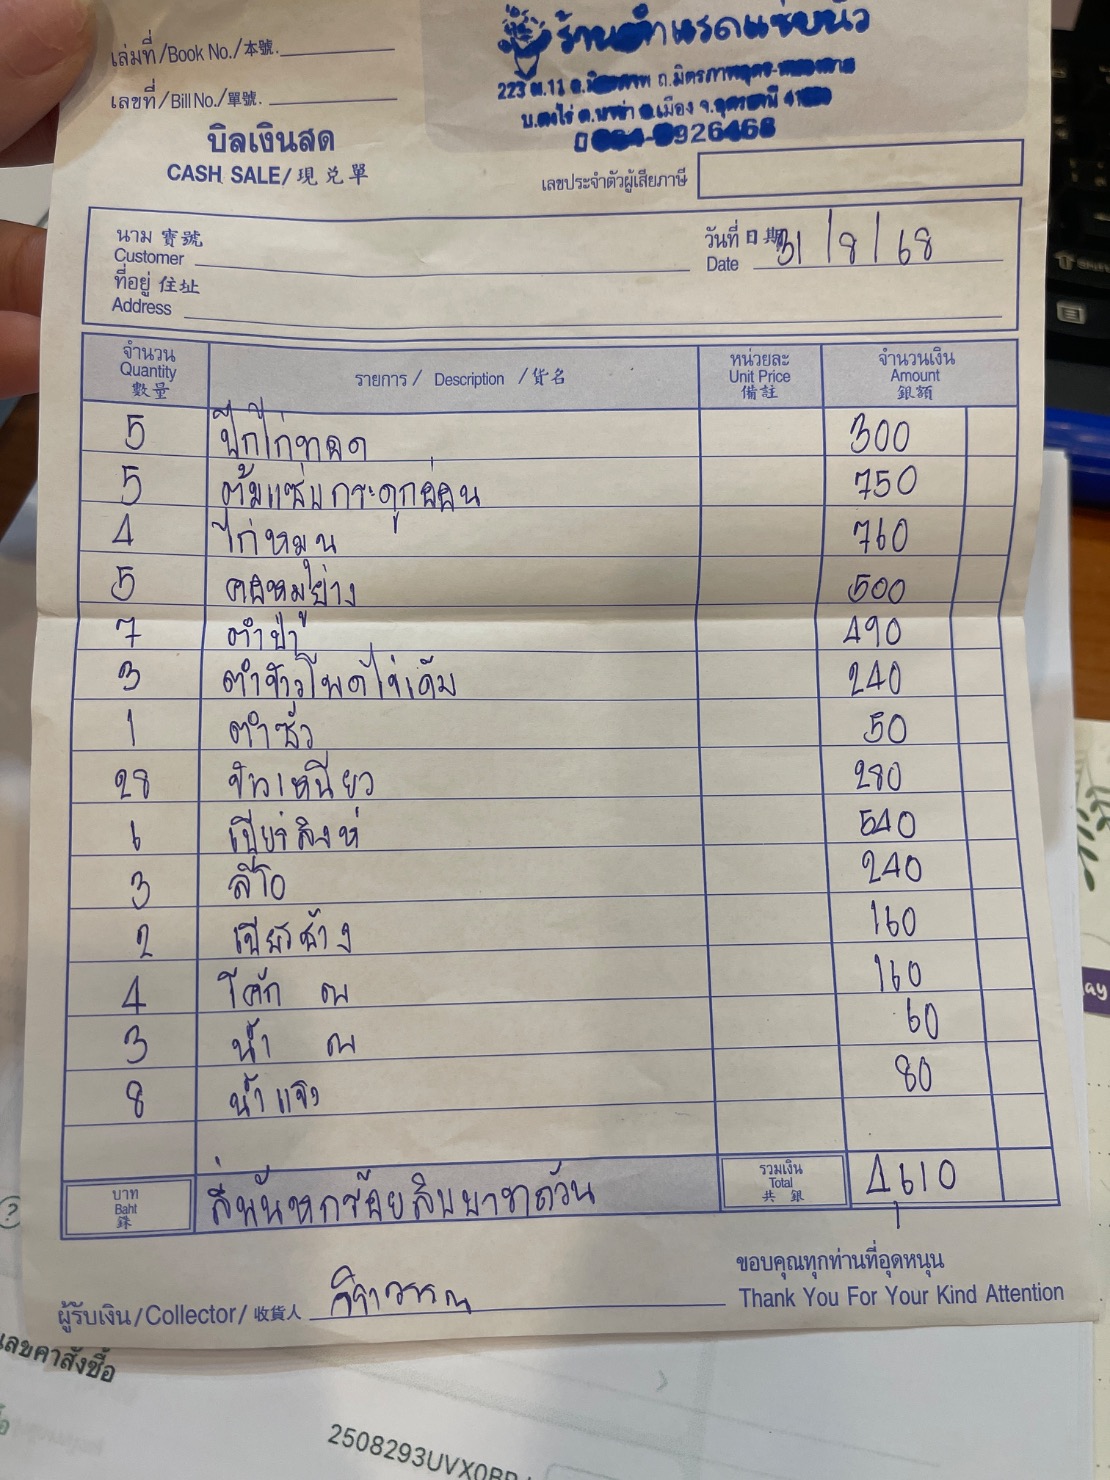 เล่มที่/Book No./本號.
เลขที่/Bill No./單號.
บิลเงินสด
CASH SALE/現兌單
223 ม.11
บ. ต. อ.เมือง จ.
926468
เลขประจำตัวผู้เสียภาษี
นาม 寶號
Customer
วันที่ 日期 31/8/68
Date
ที่อยู่ 住址
Address
จำนวน Quantity 數量 รายการ / Description / 貨名 หน่วยละ Unit Price 備註 จำนวนเงิน Amount 銀額
5 ปีกไก่ทอด 300
5 ต้มแซ่บกระดูกอ่อน 750
4 ไก่หมุน 760
5 คอหมูย่าง 500
7 ตำป่า 490
3 ตำข้าวโพดไข่เค็ม 240
1 ตำซั่ว 50
28 280
6 เบียร์สิงห์ 540
3 ลีโอ 240
2 เบียร์ช้าง 160
4 โค้ก 160
3 น้ำ 60
8 น้ำแข็ง 80
บาท Baht 銖 สี่พันหกร้อยสิบบาทถ้วน รวมเงิน Total 共銀 4610
ขอบคุณทุกท่านที่อุดหนุน
ผู้รับเงิน/Collector/收貨人
Thank You For Your Kind Attention
2508293UVX0B